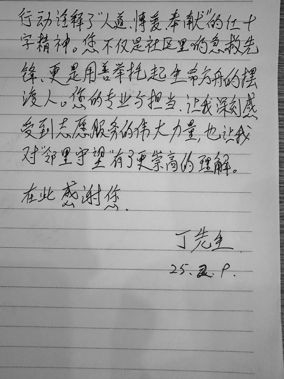 行动诠释了"人道、博爱、奉献"的红十
字精神。您不仅是社区里的急救先
锋、更是用善举托起生命方舟的摆
渡人。您的专业与担当,让我深刻感
受到志愿服务的伟大力量,也让我
对"邻里守望"有了更崇高的理解。
在此感谢您.
丁先生
25. 9.